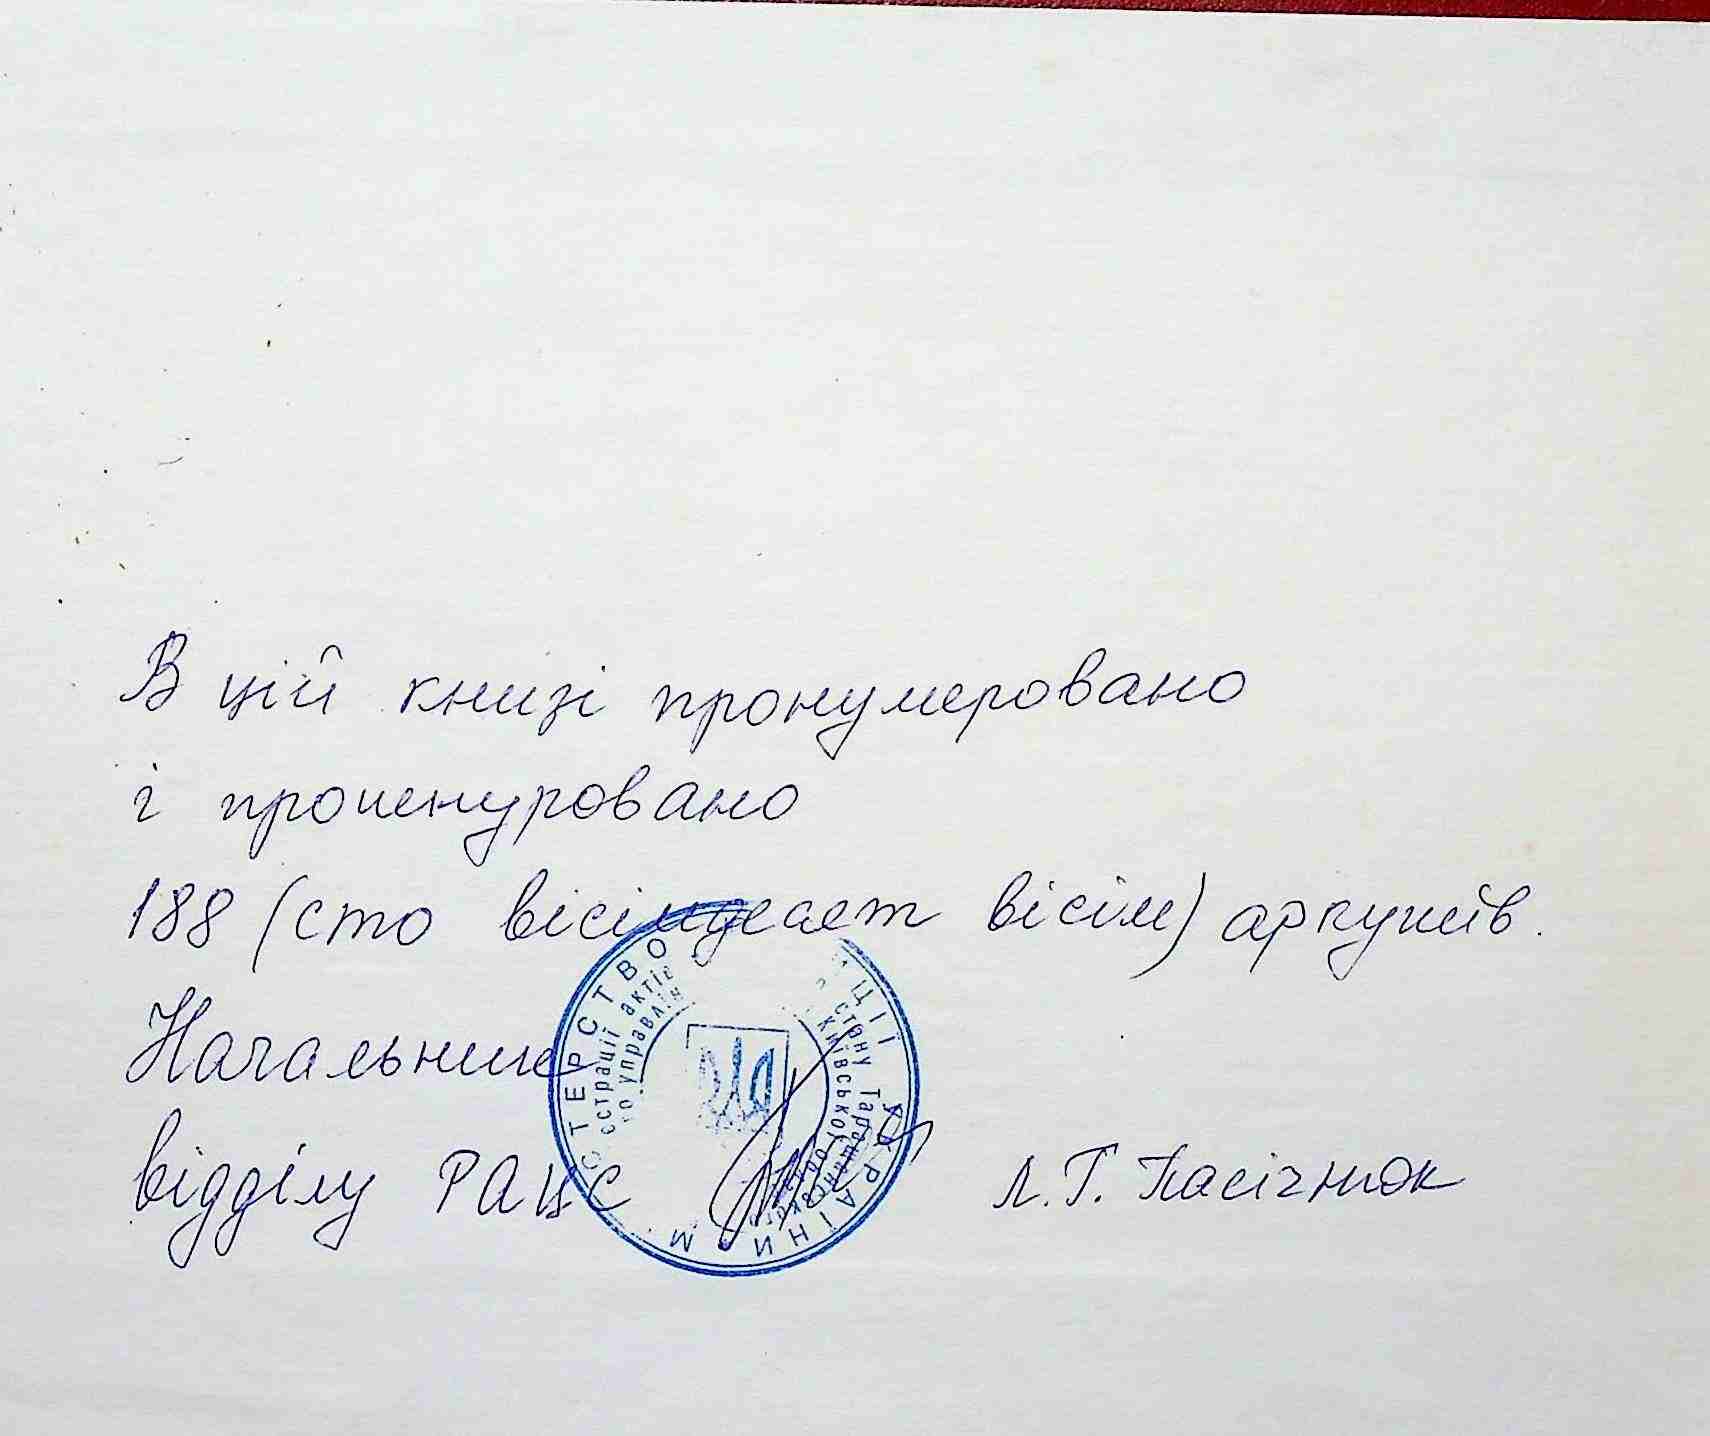 В цій книзі пронумеровано
і прошнуровано
188 (сто вісімдесят вісім) аркушів.
Начальник
відділу РАЦС Л.Г. Пасічнюк
ТЕРСТВО ЦІЇ УКРАЇНИ М
страції актів стану Таращанськ
управлін Київської об